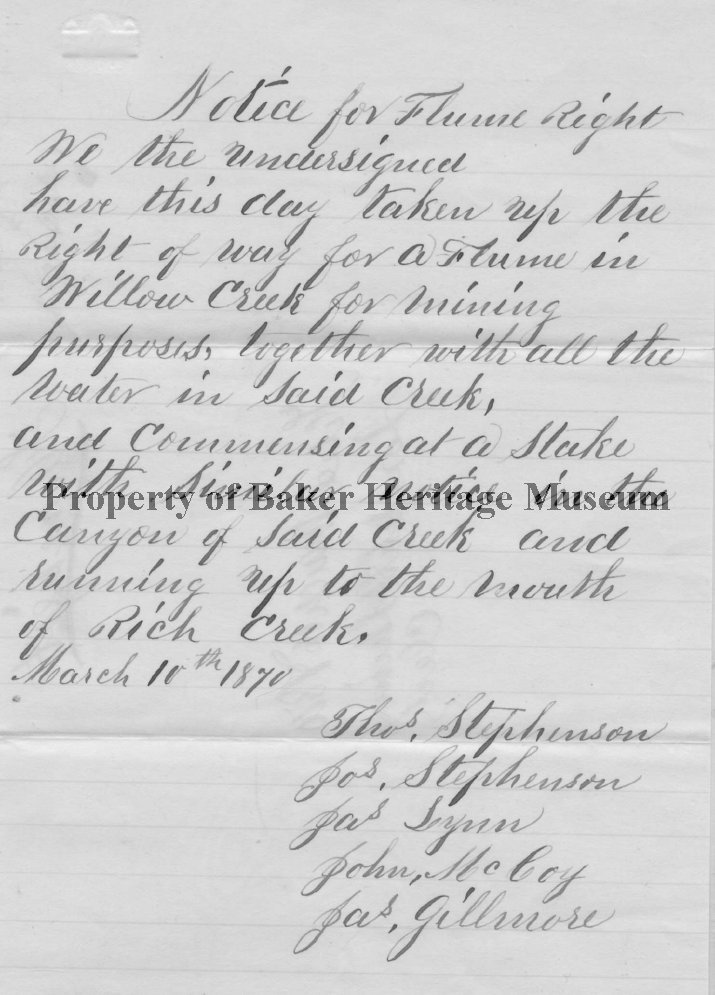 Notice for Flume Right
We the undersigned
have this day taken up the
Right of way for a Flume in
Willow Creek for mining
purposes, together with all the
Water in Said Creek,
and Commensing at a Stake
with Similar notice in the
Property of Baker Heritage Museum
Canyon of Said Creek and
running up to the mouth
of Rich Creek.
March 10th 1870
Thos. Stephenson
Jos. Stephenson
Jas Lynn
John, McCoy
Jas. Gillmore